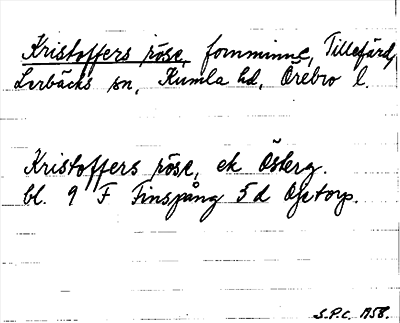 Kristoffers röse, fornminne, Tillefärd,
Lerbäcks sn, Kumla hd, Örebro l.
Kristoffers röse, ek Österg.
bl. 9 F Finspång 5d Ofetorp.
S.P.C. 1958.